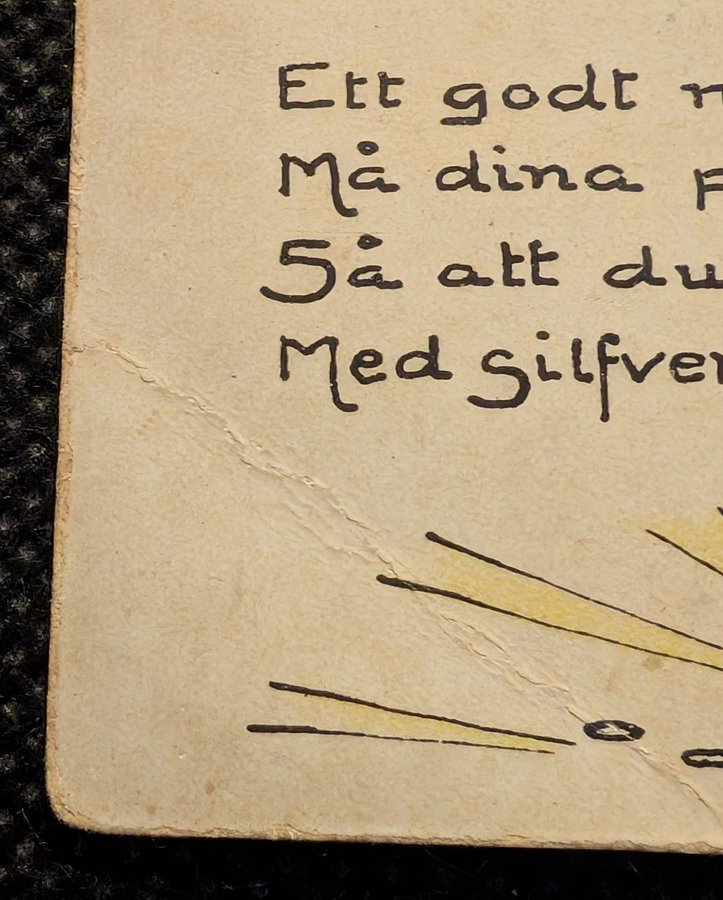 Ett godt
Må dina
Så att du
Med silfver